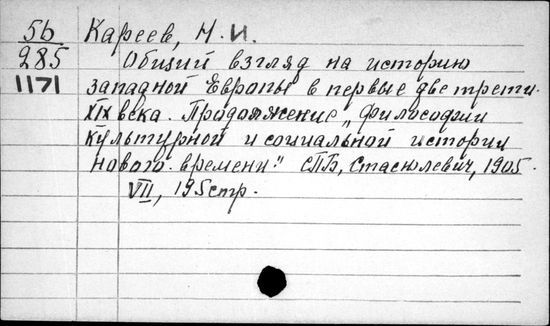 5б Кареев, Н.И.
285 Общий взгляд на историю
1171 западной Европы в первые две трети
XIX века. Продолжение „философии
культурной и социальной истории
нового времени". СПБ, Стасюлевич, 1905.
VII, 195 стр.